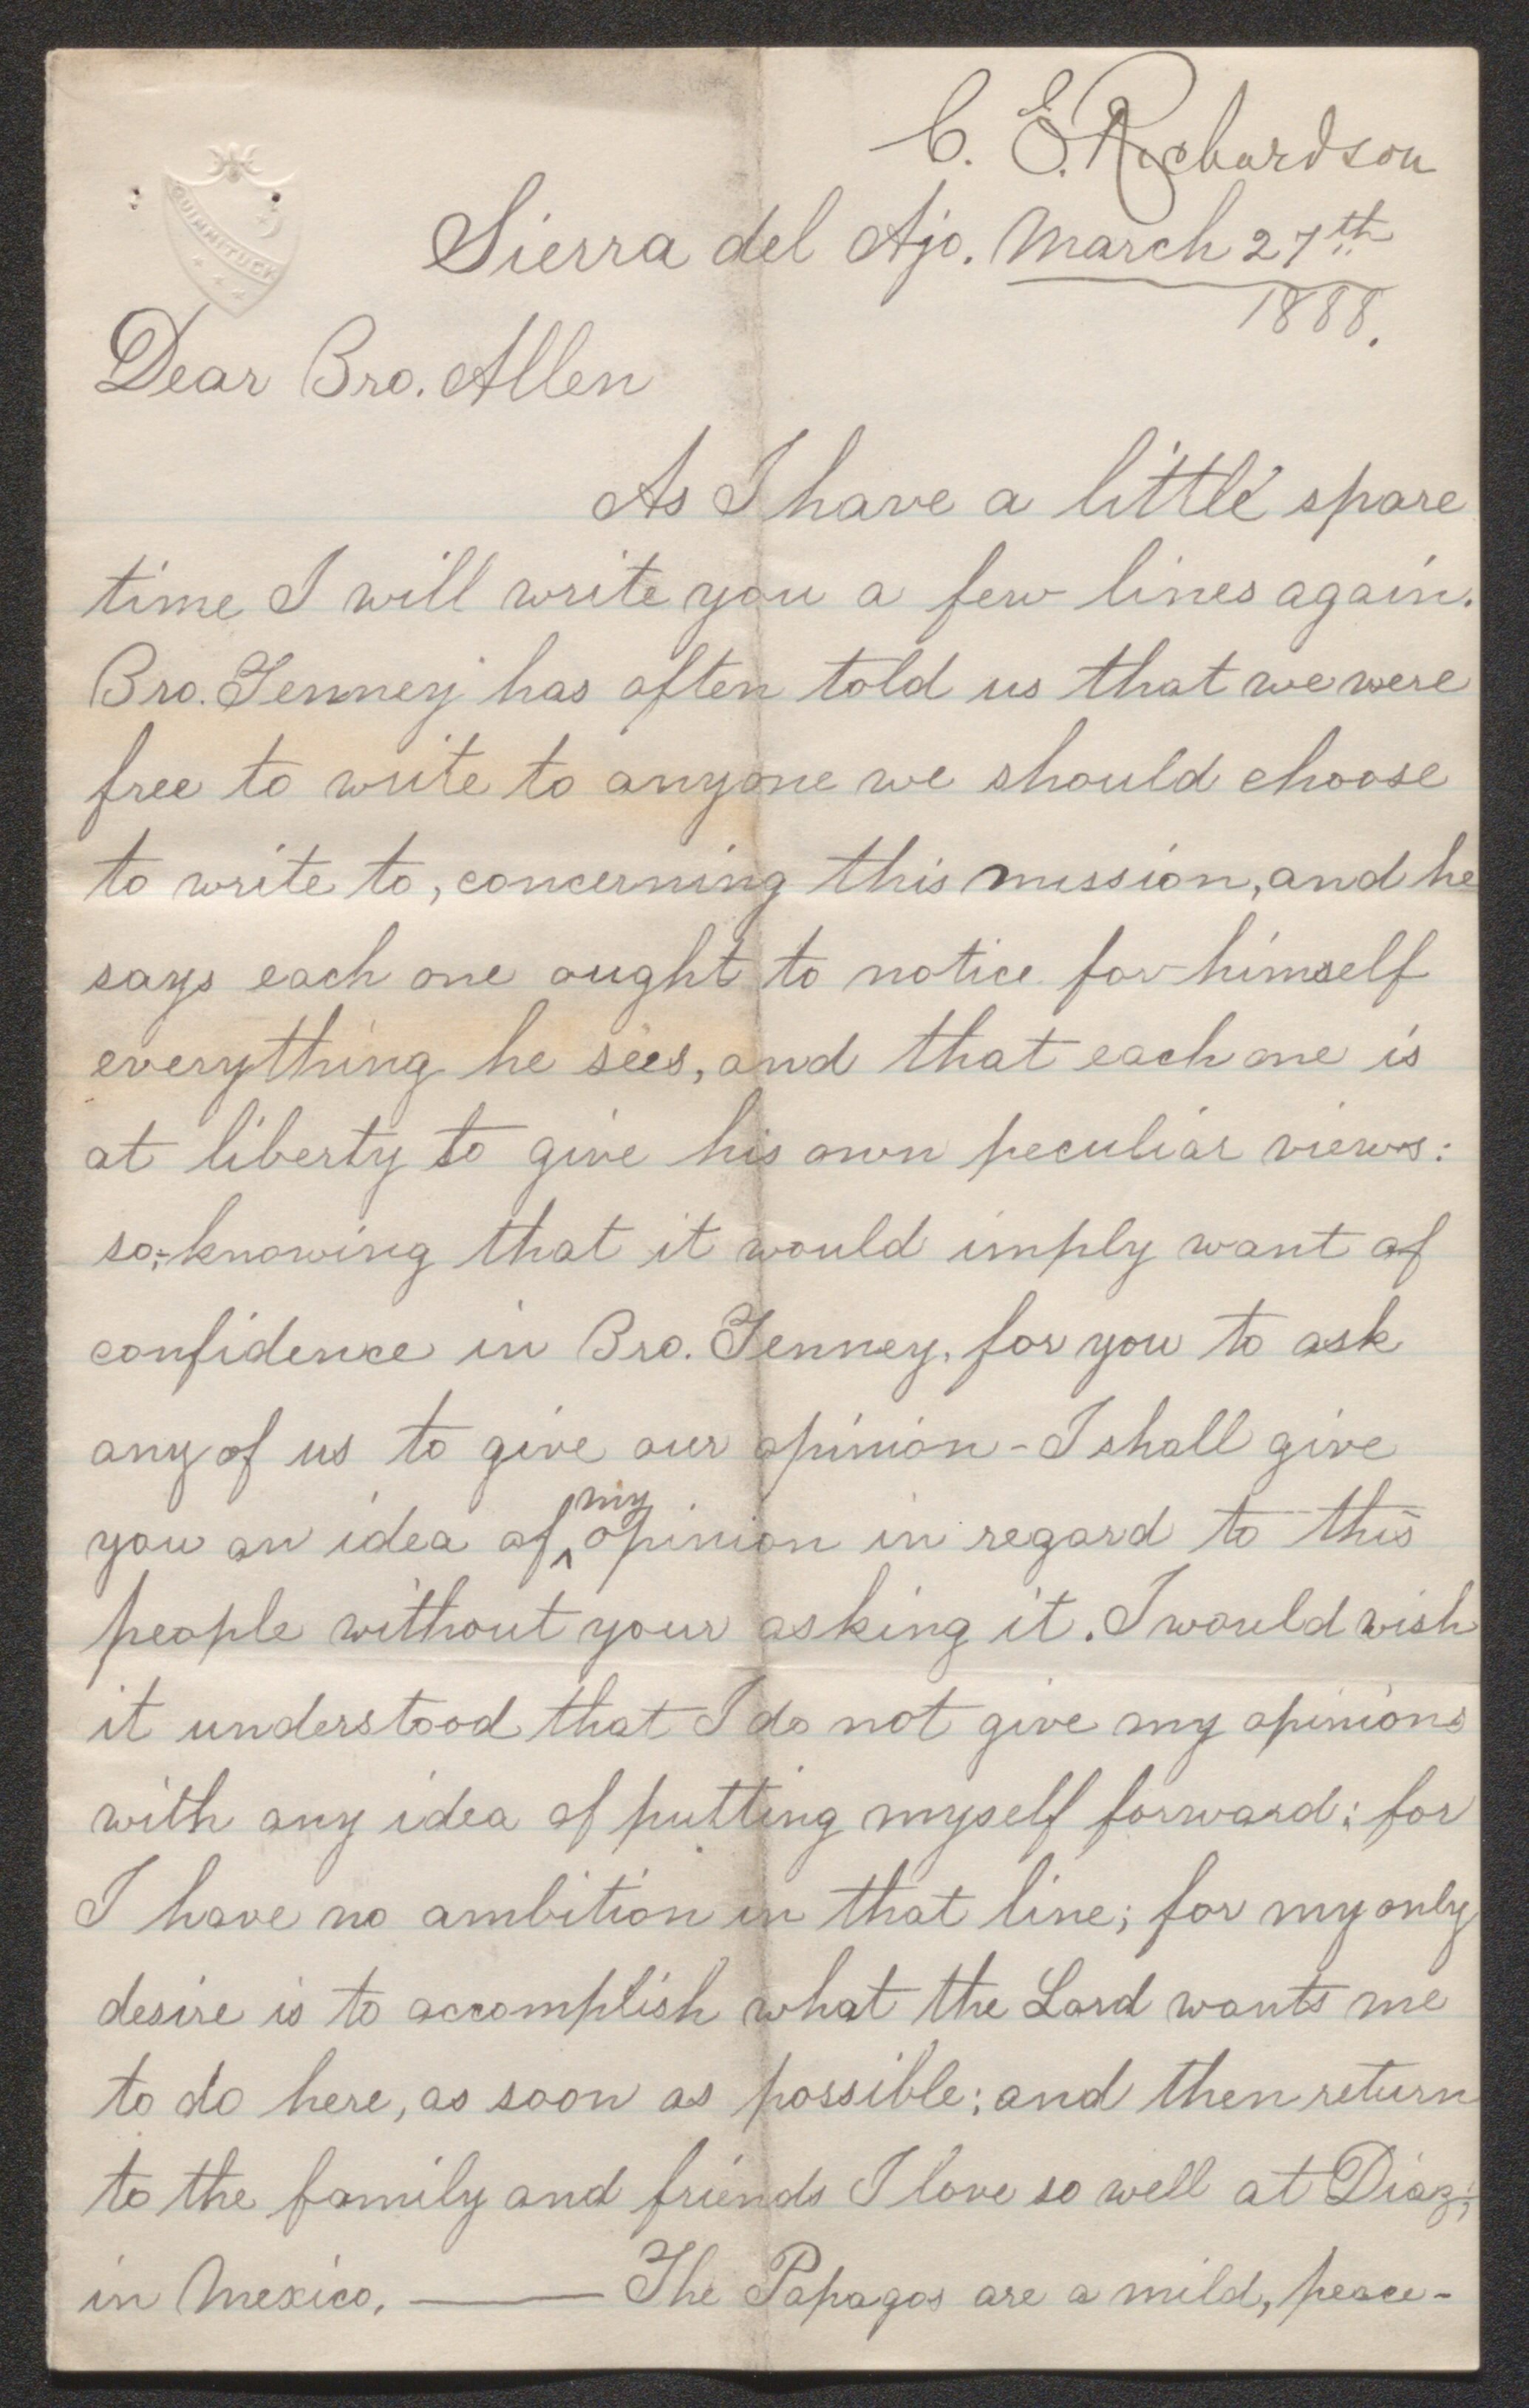 C. E. Richardson
QUINNITUCK
Sierra del Ajo. March 27th
1888.
Dear Bro. Allen
As I have a little spare
time I will write you a few lines again.
Bro. Tenney has often told us that we were
free to write to anyone we should choose
to write to, concerning this mission, and he
says each one ought to notice for himself
everything he sees, and that each one is
at liberty to give his own peculiar views:
so;-knowing that it would imply want of
confidence in Bro. Tenney, for you to ask
any of us to give our opinion - I shall give
you an idea of ^my opinion in regard to this
people without your asking it. I would wish
it understood that I do not give my opinions
with any idea of putting myself forward; for
I have no ambition in that line; for my only
desire is to accomplish what the Lord wants me
to do here, as soon as possible; and then return
to the family and friends I love so well at Diaz;
in Mexico. —— The Papagos are a mild, peace-